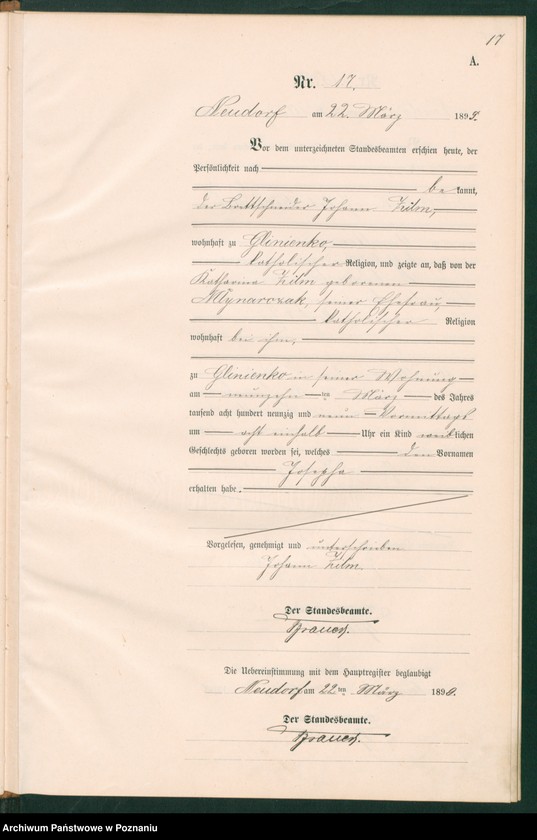 17
A.
Nr. 17.
Neudorf am 22. März 1899.
Vor dem unterzeichneten Standesbeamten erschien heute, der
Persönlichkeit nach
bekannt,
der Brettschneider Johann Zilm,
wohnhaft zu Glinienko,
katholischer Religion, und zeigte an, daß von der
Katharina Zilm geborenen
Mlynarczak, seiner Ehefrau,
katholischer Religion
wohnhaft bei ihm,
zu Glinienko in seiner Wohnung
am neunzehnten März des Jahres
tausend acht hundert neunzig und neun Vormittags
um acht einhalb Uhr ein Kind weiblichen
Geschlechts geboren worden sei, welches den Vornamen
Josepha
erhalten habe.
Vorgelesen, genehmigt und unterschrieben
Johann Zilm
Der Standesbeamte.
Die Uebereinstimmung mit dem Hauptregister beglaubigt
Neudorf am 22ten März 1899.
Der Standesbeamte.
Archiwum Państwowe w Poznaniu